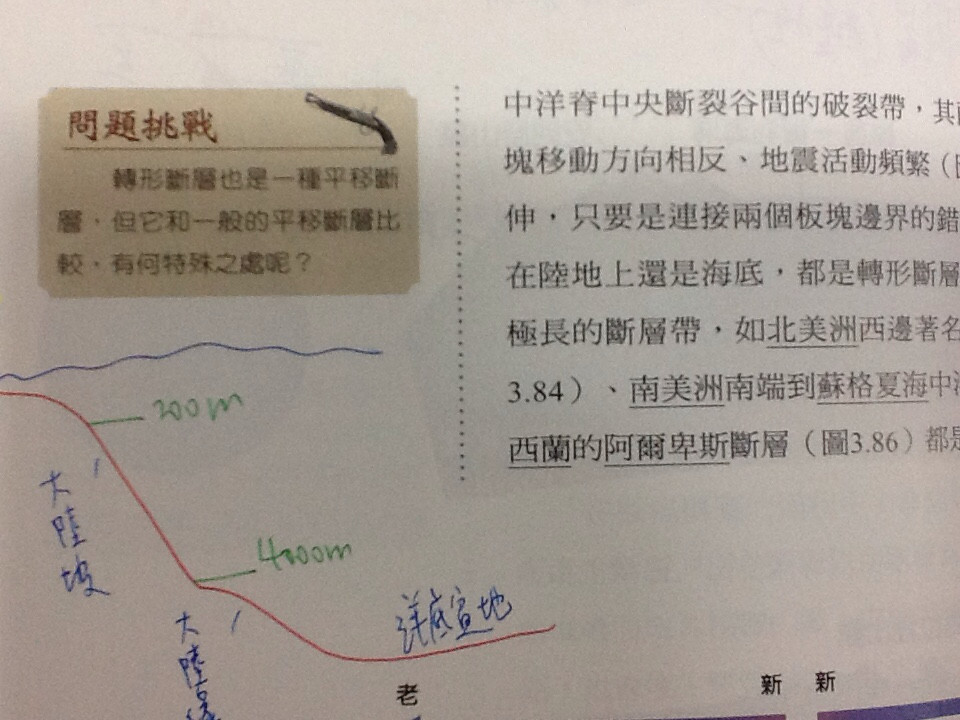 問題挑戰
轉形斷層也是一種平移斷
層，但它和一般的平移斷層比
較，有何特殊之處呢？
中洋脊中央斷裂谷間的破裂帶，其
塊移動方向相反、地震活動頻繁（
伸，只要是連接兩個板塊邊界的錯
在陸地上還是海底，都是轉形斷層
極長的斷層帶，如北美洲西邊著名
3.84）、南美洲南端到蘇格夏海中
西蘭的阿爾卑斯斷層（圖3.86）都是
200m
大陸坡
4000m
洋底
地
大陸
老
新 新